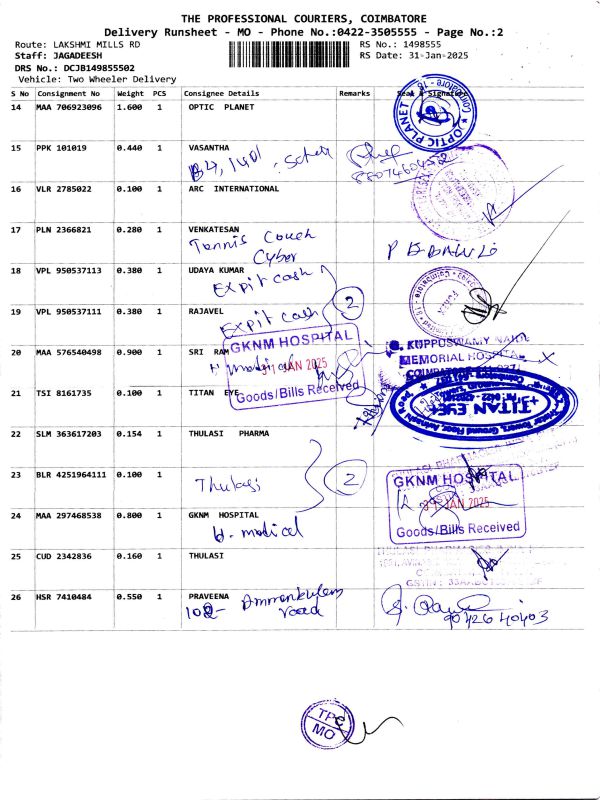 THE PROFESSIONAL COURIERS, COIMBATORE
Delivery Runsheet - MO - Phone No.:0422-3505555 - Page No.:2
Route: LAKSHMI MILLS RD RS No.: 1498555
Staff: JAGADEESH RS Date: 31-Jan-2025
DRS No.: DCJB149855502
Vehicle: Two Wheeler Delivery
S No Consignment No Weight PCS Consignee Details Remarks Seal & Signature
14 MAA 706923096 1.600 1 OPTIC PLANET
OPTIC PLANET
15 PPK 101019 0.440 1 VASANTHA
16 VLR 2785022 0.100 1 ARC INTERNATIONAL
17 PLN 2366821 0.280 1 VENKATESAN
Tennis Couch
Cyber
18 VPL 950537113 0.380 1 UDAYA KUMAR
Expit cash
19 VPL 950537111 0.380 1 RAJAVEL
Expit cash
2
20 MAA 576540498 0.900 1 SRI RAM
GKNM HOSPITAL
31 JAN 2025
Goods/Bills Received
KUPPUSWAMY NAIDU
MEMORIAL HOSPITAL
21 TSI 8161735 0.100 1 TITAN EYE
TITAN EYE+
22 SLM 363617203 0.154 1 THULASI PHARMA
23 BLR 4251964111 0.100 1
Thulasi
2
GKNM HOSPITAL
31 JAN 2025
Goods/Bills Received
24 MAA 297468538 0.800 1 GKNM HOSPITAL
H. medical
25 CUD 2342836 0.160 1 THULASI
26 HSR 7410484 0.550 1 PRAVEENA
Ammankulam
road
9042640403
TPC
MO